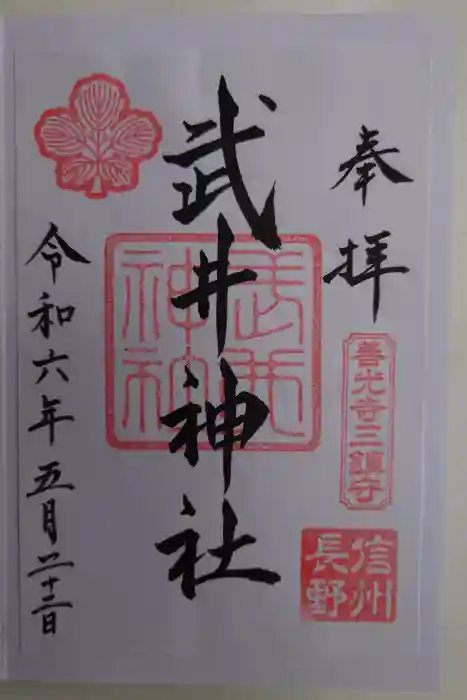 奉拝
善光寺三鎮守
信州
長野
武井神社
武井
神社
令和六年五月二十二日